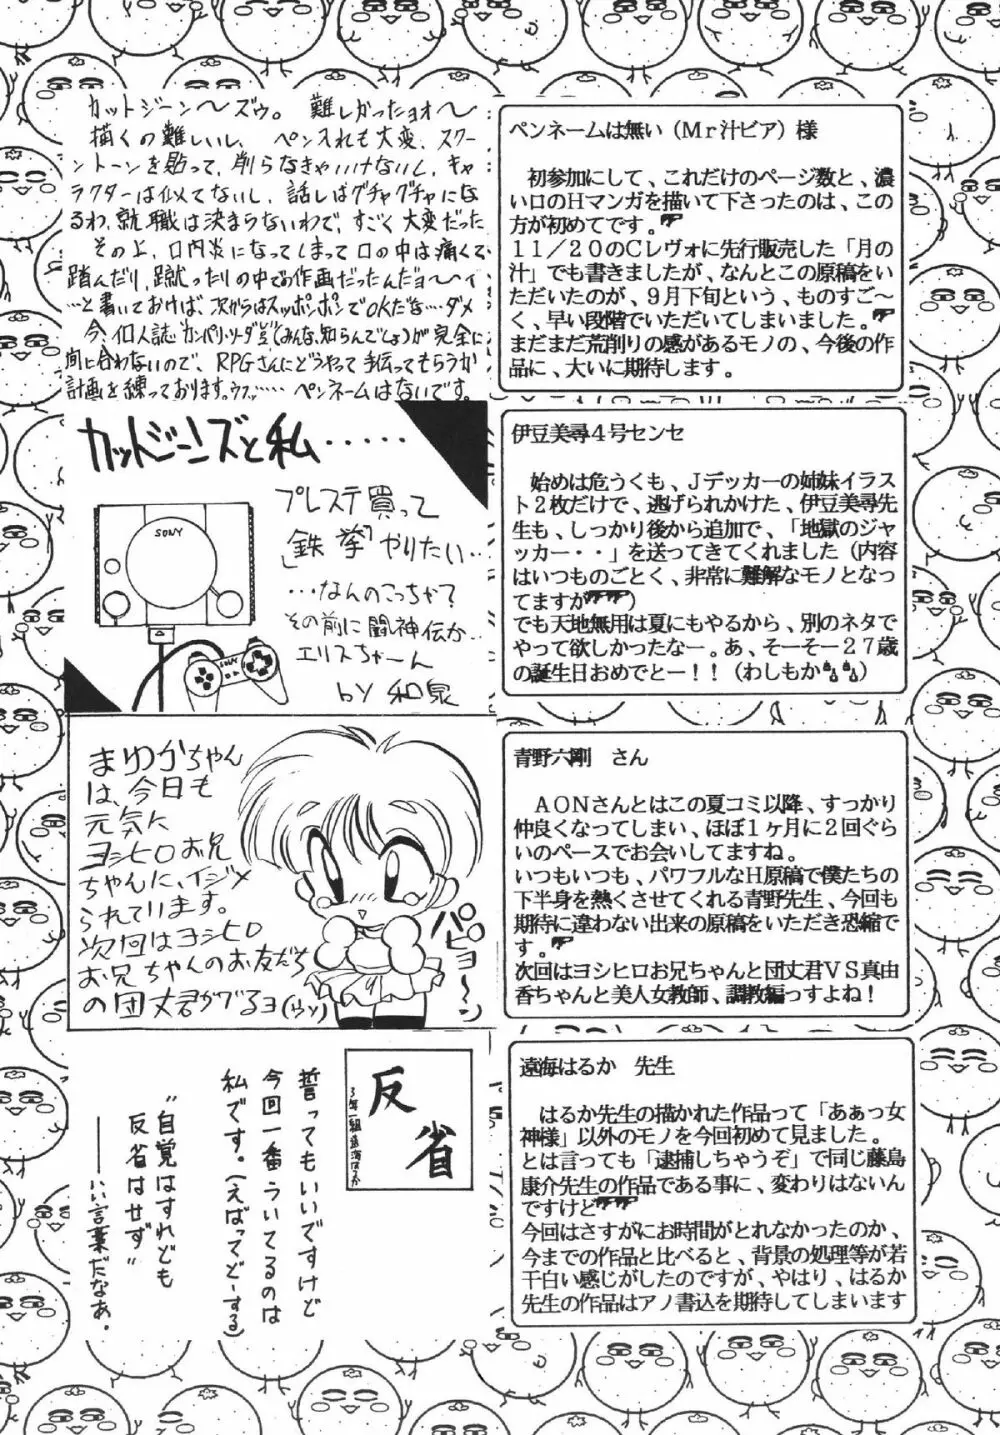 カットジーン〜ズゥ。難しかったョォ〜
描くの難しいし、ペン入れも大変、スクリ
ーントーンを貼って、削らなきゃいけないし、キャ
ラクターは似てないし、話しはグチャグチャにな
るわ、就職は決まらないわで、すごく大変だった
その上、口内炎になってしまって口の中は痛くて
踏んだり、蹴ったりの中でお作画だったんだョ〜〜ィ
…と書いておけば、次からはスッポンポンでOKだな…ダメ
今、個人誌
(みんな知らんでしょ)が完全に
間に合わないので、RPGさんにどうやって手伝ってもらうか
計画を練っております。ウフッ…… ペンネームはないです。
ペンネームは無い(Mr汁ビア)様
初参加にして、これだけのページ数と、濃
い口のHマンガを描いて下さったのは、この
方が初めてです。
11/20のCレヴォに先行販売した「月の
汁」でも書きましたが、なんとこの原稿をい
ただいたのが、9月下旬という、ものすご〜
く、早い段階でいただいてしまいました。
まだまだ荒削りの感があるモノの、今後の作
品に、大いに期待します。
カットジーンズと私・・・・・
SONY
SONY
プレステ買って
「鉄拳」やりたい…
…なんのこっちゃ?
その前に闘神伝か…
エリスちゃーん
by 和泉
伊豆美尋4号センセ
始めは危うくも、Jデッカーの姉妹イラス
ト2枚だけで、逃げられかけた、伊豆美尋先
生も、しっかり後から追加で、「地獄のジャ
ッカー・・」を送ってきてくれました(内容
はいつものごとく、非常に難解なモノとなっ
てますが)
でも天地無用は夏にもやるから、別のネタで
やって欲しかったなー。あ、そーそー27歳
の誕生日おめでとー!!(わしもか)
まゆかちゃん
は、今日も
元気に
ヨシヒロお兄
ちゃんに、イジメ
られています。
次回はヨシヒロ
お兄ちゃんのお友だち
の団丈君がでるヨ(ウソ)
パピョ〜〜ン
青野六剛 さん
AONさんとはこの夏コミ以降、すっかり
仲良くなってしまい、ほぼ1ヶ月に2回ぐら
いのペースでお会いしてますね。
いつもいつも、パワフルなH原稿で僕たちの
下半身を熱くさせてくれる青野先生、今回も
期待に違わない出来の原稿をいただき恐縮で
す。
次回はヨシヒロお兄ちゃんと団丈君VS真由
香ちゃんと美人女教師、調教編っすよね!
反省
3年一組遠海はるか
誓ってもいいですけど
今回一番ういてるのは
私です。(えばってどーする)
"自覚はすれども
反省はせず"
――いい言葉だなぁ.
遠海はるか 先生
はるか先生の描かれた作品って「あぁっ女
神様」以外のモノを今回初めて見ました。
とは言っても「逮捕しちゃうぞ」で同じ藤島
康介先生の作品である事に、変わりはないん
ですけど
今回はさすがにお時間がとれなかったのか、
今までの作品と比べると、背景の処理等が若
干白い感じがしたのですが、やはり、はるか
先生の作品はアノ書込を期待してしまいます